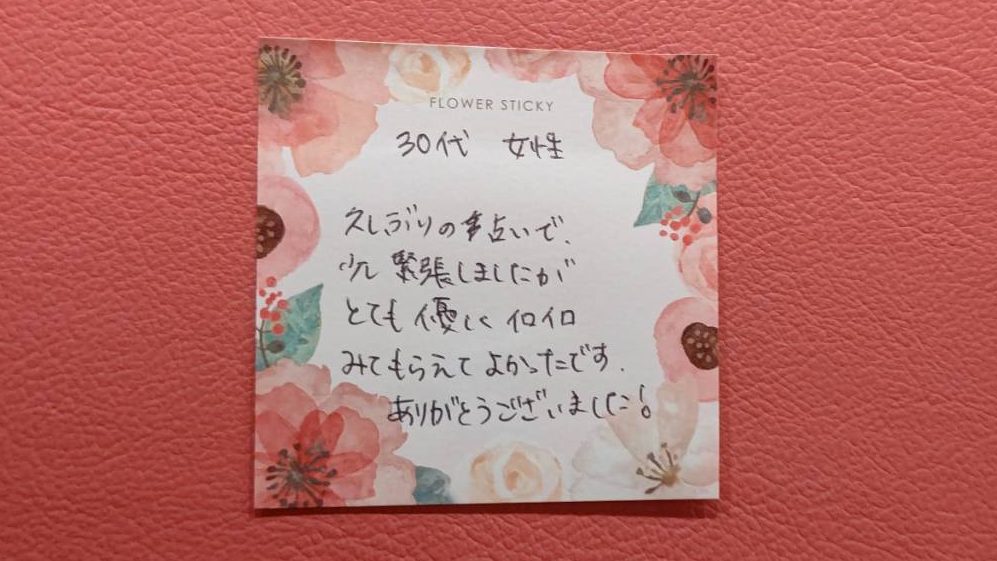 FLOWER STICKY
30代 女性
久しぶりの占いで、
少し緊張しましたが
とても優しくイロイロ
みてもらえてよかったです.
ありがとうございました!